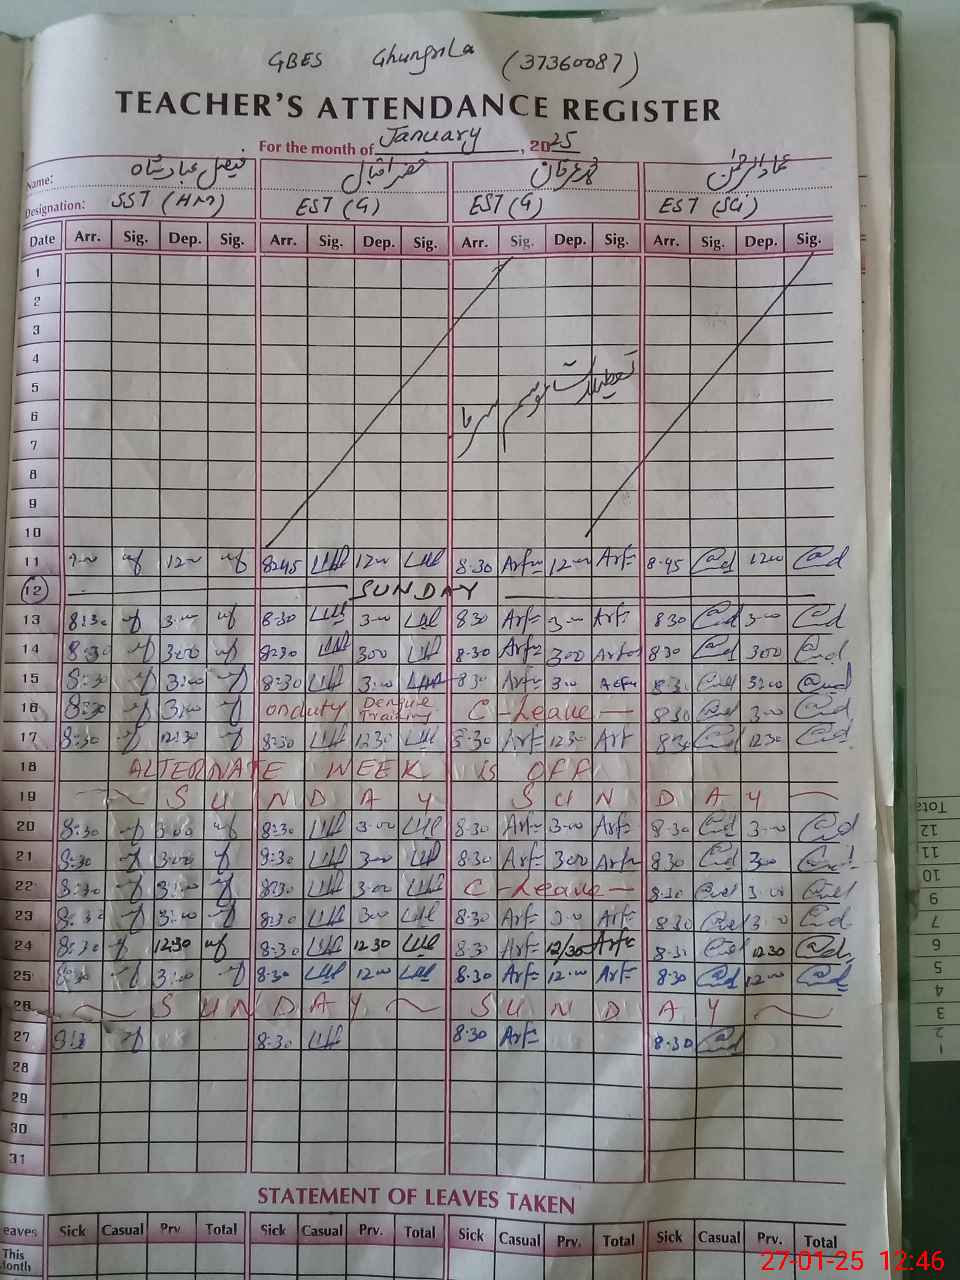 GBES Ghungrila (37360087)
TEACHER'S ATTENDANCE REGISTER
For the month of January, 2025
Name: فیصل عباد شاہ خضر اقبال محمد عرفان عماد الرحمٰن
Designation: SST (HM) EST (G) EST (G) EST (Sci)
Date Arr. Sig. Dep. Sig. Arr. Sig. Dep. Sig. Arr. Sig. Dep. Sig. Arr. Sig. Dep. Sig.
1
2
3
4
5 تعطیلات موسم سرما
6
7
8
9
10
11 9:00 12:00 8:45 12:00 8:30 12:00 8:45 12:00
12 SUNDAY
13 8:30 3:00 8:30 3:00 8:30 3:00 8:30 3:00
14 8:30 3:00 8:30 3:00 8:30 3:00 8:30 3:00
15 8:30 3:00 8:30 3:00 8:30 3:00 8:30 3:00
16 8:30 3:00 onduty Dengue Training C-Leave 8:30 3:00
17 8:30 12:30 8:30 12:30 8:30 12:30 8:30 12:30
18 ALTERNATE WEEK is OFF
19 SUNDAY SUNDAY
20 8:30 3:00 8:30 3:00 8:30 3:00 8:30 3:00
21 8:30 3:00 8:30 3:00 8:30 3:00 8:30 3:00
22 8:30 3:00 8:30 3:00 C-Leave 8:30 3:00
23 8:30 3:00 8:30 3:00 8:30 3:00 8:30 3:00
24 8:30 12:30 8:30 12:30 8:30 12/30 8:30 12:30
25 8:30 3:00 8:30 12:00 8:30 12:00 8:30 12:00
26 SUNDAY SUNDAY
27 8:30 8:30 8:30 8:30
28
29
30
31
STATEMENT OF LEAVES TAKEN
eaves Sick Casual Prv. Total Sick Casual Prv. Total Sick Casual Prv. Total Sick Casual Prv. Total
This
Month
27-01-25 12:46